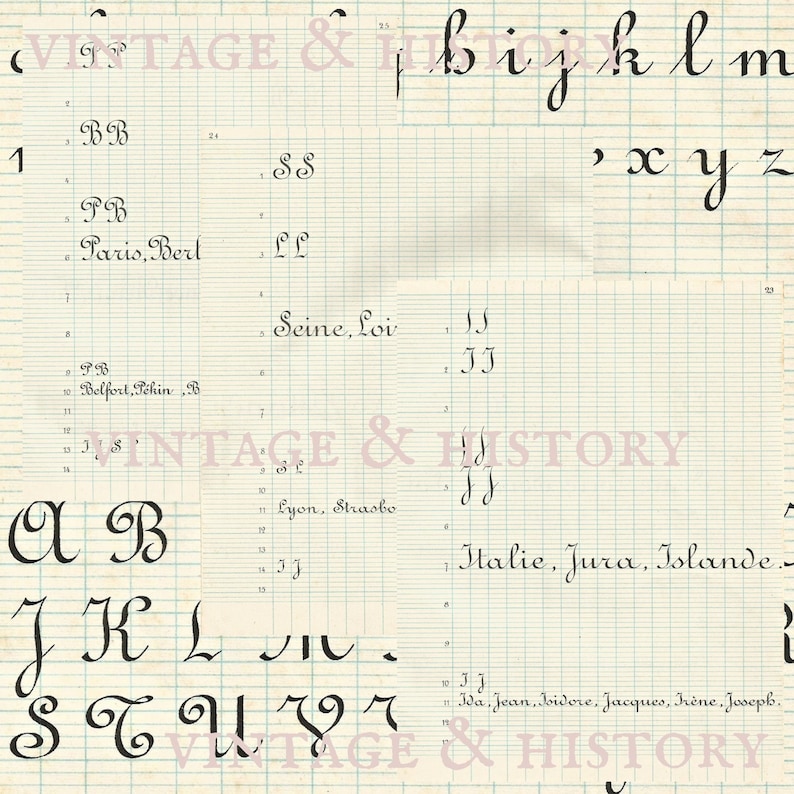 b i j k l m
x y z
VINTAGE & HISTORY
25
P P
2
3 B B
4
5 P B
6 Paris, Berl
7
8
9 P B
10 Belfort, Pékin , B
11
12
13 I J S
14
24
1 S S
2
3 L L
4
5 Seine, Loi
6
7
8
9 S L
10
11 Lyon, Strasbo
12
13
14 I J
15
23
1 I I
2 I I
3
4 J J
5 J J
6
7 Italie, Jura, Islande.
8
9
10 I J
11 Ida, Jean, Isidore, Jacques, Irène, Joseph.
12
13
VINTAGE & HISTORY
A B
J K L M
S T U V
VINTAGE & HISTORY